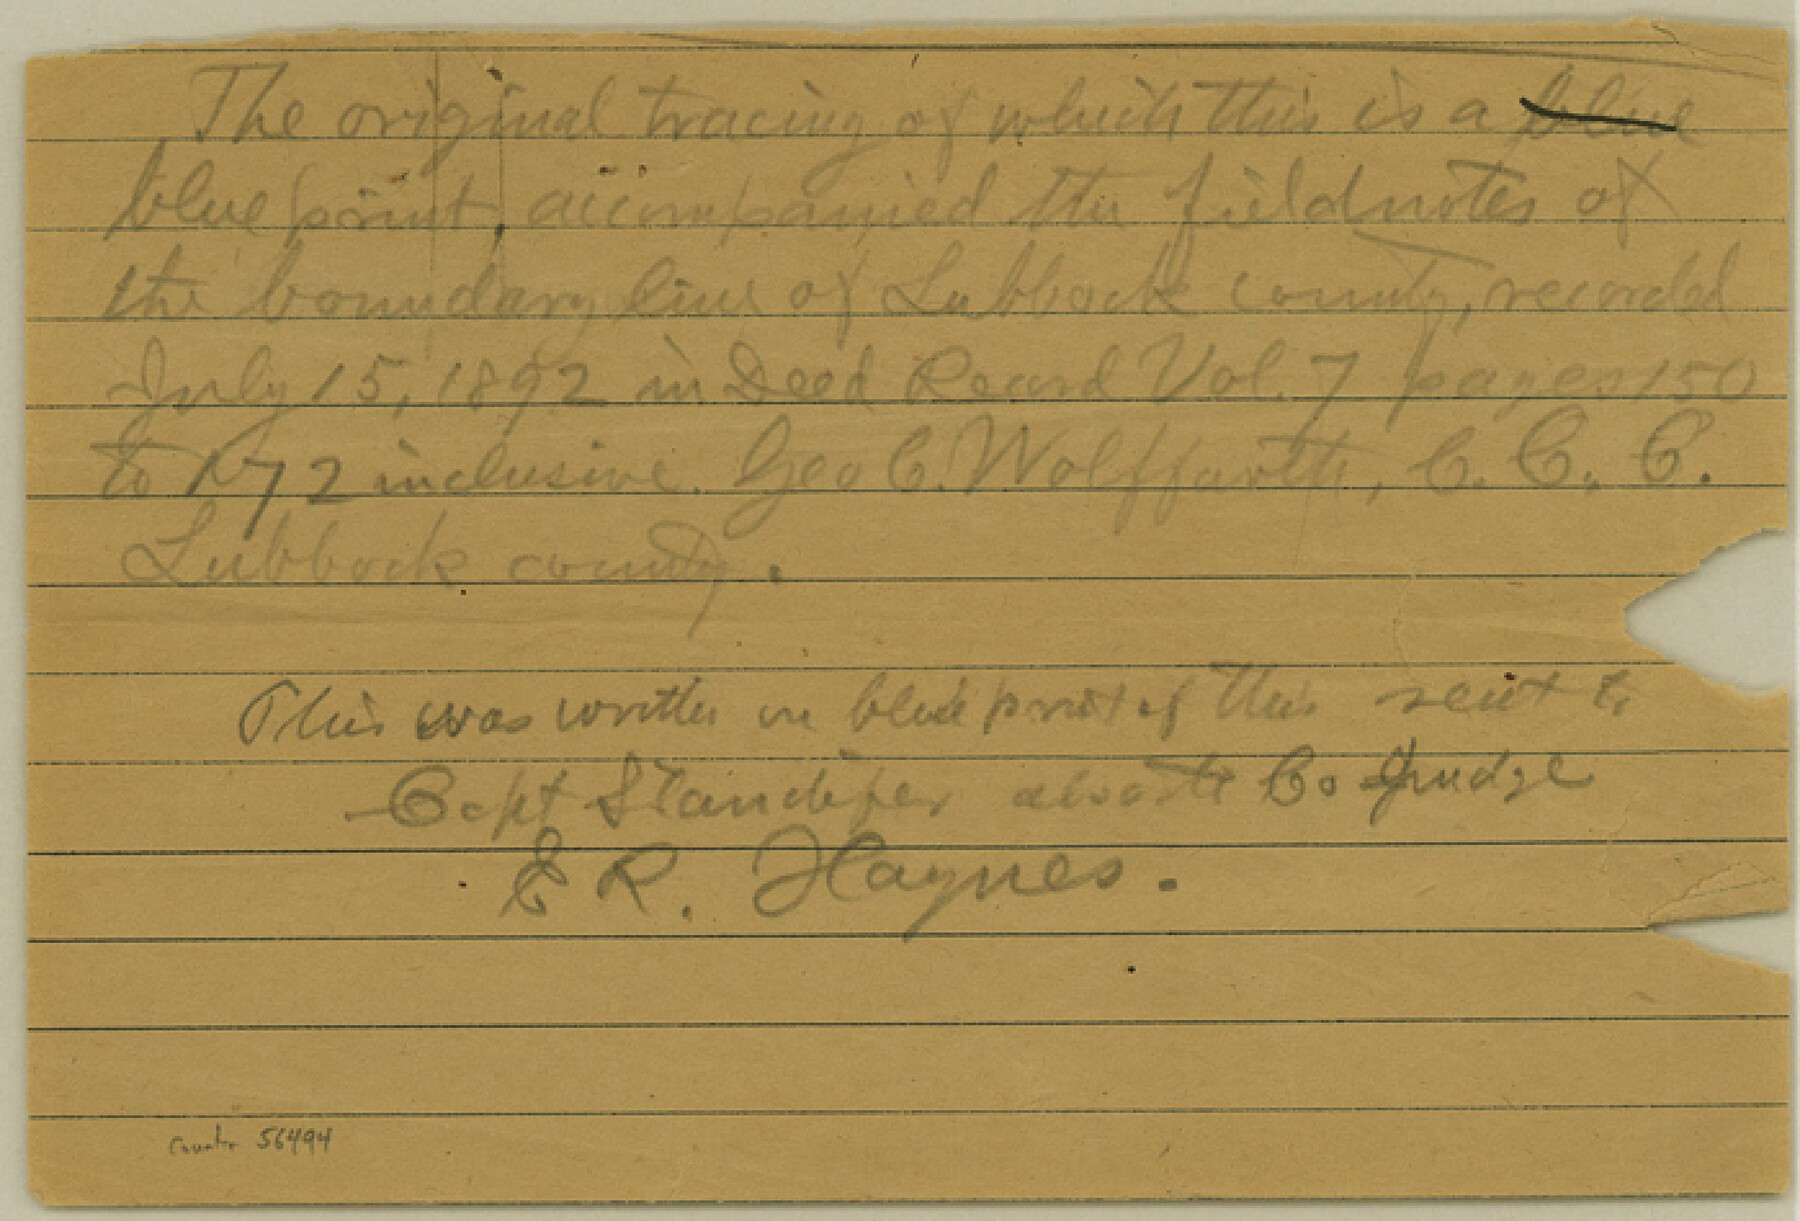 The original tracing of which this is a blue
blue print, accompanied the fieldnotes of
the boundary line of Lubbock county, recorded
July 15, 1892 in Deed Record Vol. 7 pages 150
to 172 inclusive. Geo C. Wolffarth, C. C. C.
Lubbock county.
This was written on blue print of this sent to
Capt Standifer also to Co Judge
E R. Haynes.
Counter 56494